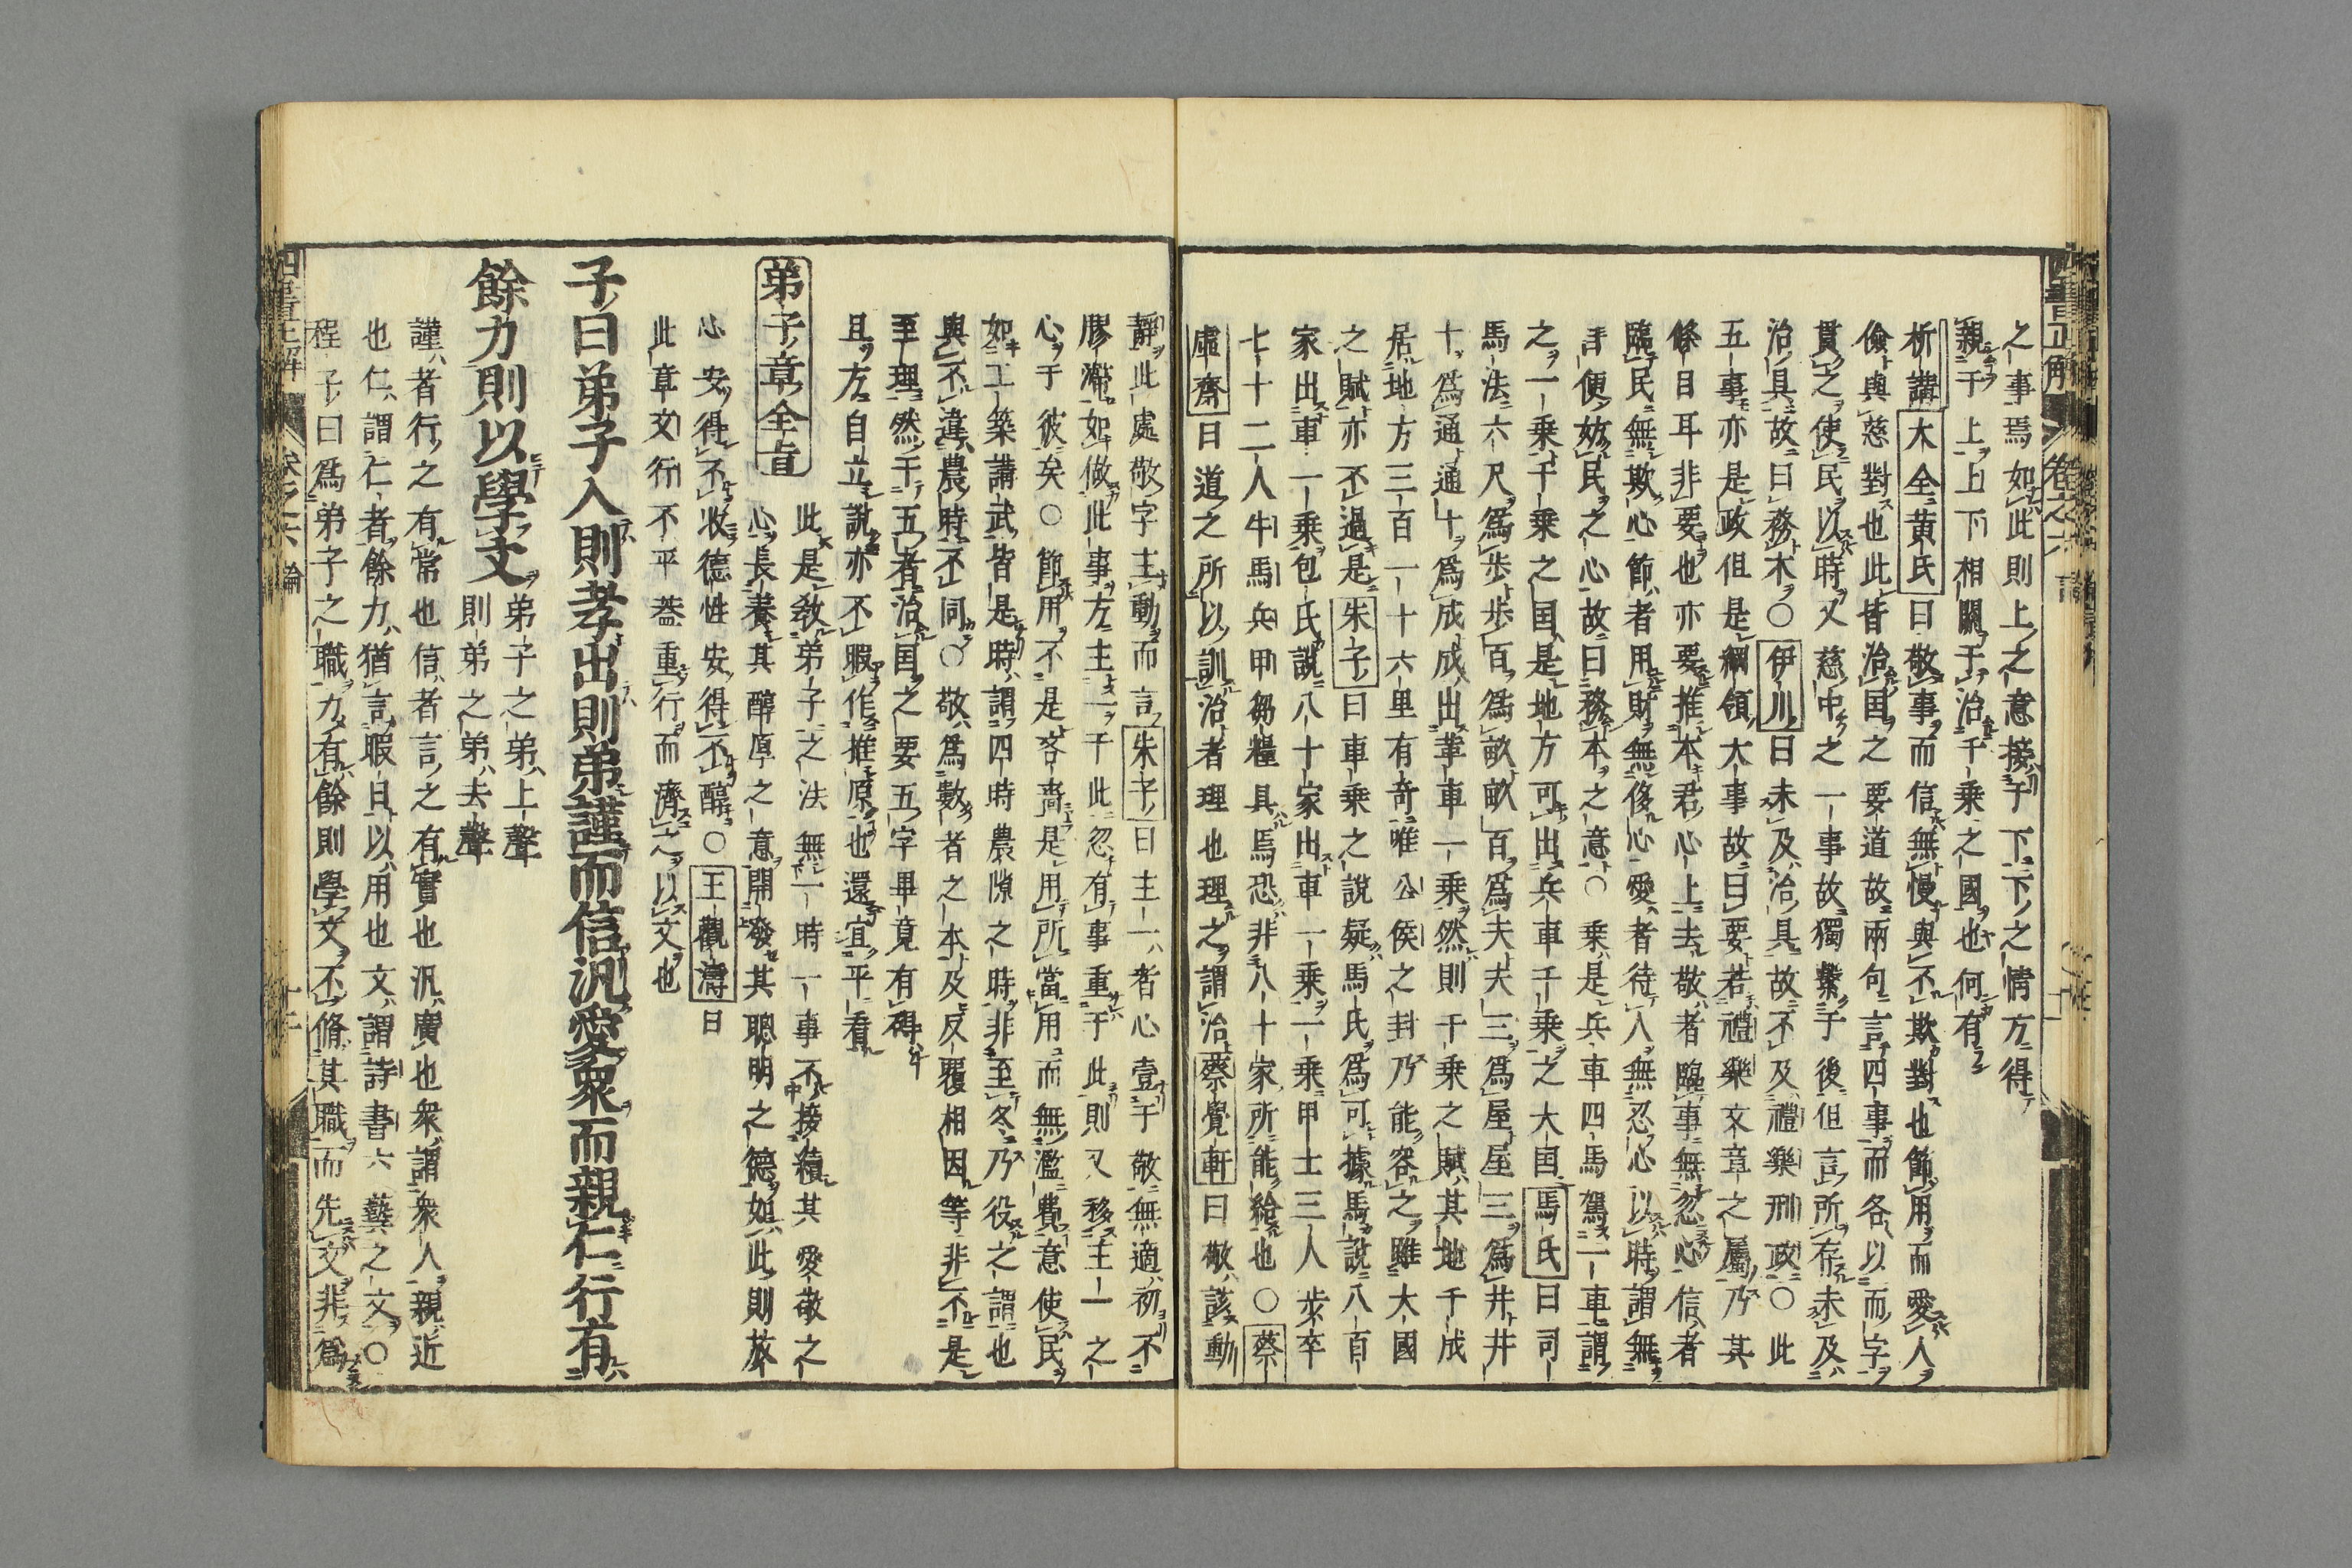 之事焉如此則上之意接于下下之情方得
親于上上下相關于治千乗之國也何有
析講大全黄氏曰敬事而信無慢與不欺對也節用而愛人
儉與慈對也此皆治国之要道故兩句言四事而各以而字
貫之使民以時又慈中之一事故獨繫于後但言所存未及
治具故曰務本〇伊川曰未及治具故不及禮樂刑政〇此
五事亦是政但是綱領大事故曰要若禮樂文章之屬乃其
條目耳非要也亦要推本君心上去敬者臨事無忽心信者
臨民無欺心節者用財無侈心愛者待人無忍心以時謂無
便妨民之心故曰務本之意〇乗是兵車四馬駕一車謂
之一乗千乗之国是地方可出兵車千乗之大国馬氏曰司
馬法六尺爲歩歩百爲畝畝百爲夫夫三爲屋屋三爲井井
十爲通通十爲成成出革車一乗然則千乗之賦其地千成
居地方三百一十六里有竒唯公侯之封乃能容之雖大國
之賦亦不過是朱子曰車乗之説疑馬氏爲可據馬説八百
家出車一乗包氏説八十家出車一乗一乗甲士三人歩卒
七十二人牛馬兵甲芻糧具焉恐非八十家所能給也〇蔡
虚齋曰道之所以訓治者理也理之謂治蔡覺軒曰敬該動
靜此處敬字主動而言朱子曰主一者心壹于敬無適初不
膠滯如做此事方主一于此忽有事重于此則又移主一之
心于彼矣〇節用不是吝嗇是用所當用而無濫費意使民
如工築講武皆是時謂四時農隙之時非至冬乃役之謂也
與不違農時不同〇敬爲數者之本及反覆相因等非不是
至理然于五者治国之要五字畢竟有碍
且方自立説亦不暇作推原也還宜平看
弟子章全旨
此是教弟子之法無一時一事不接續其愛敬之
心長養其醇厚之意開發其聰明之德如此則放
心安得不收德性安得不醇〇王觀濤曰
此章文行不平葢重行而濟之以文也
子曰弟子入則孝出則弟謹而信汎愛衆而親仁行有
餘力則以學文
弟子之弟上聲
則弟之弟去聲
謹者行之有常也信者言之有實也汎廣也衆謂衆人親近
也仁謂仁者餘力猶言暇日以用也文謂詩書六藝之文〇
程子曰爲弟子之職力有餘則學文不脩其職而先文非爲